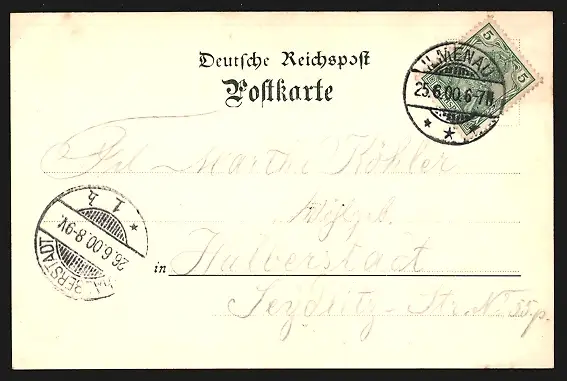 Deutsche Reichspost
Postkarte
5 5
ILMENAU
25.6.00.6-7N
* * *
Frl. Marthe Köhler
in Halberstadt
Seydlitz-Str. No 55p.
HALBERSTADT
26.6.00.8-9V.
* 1 h